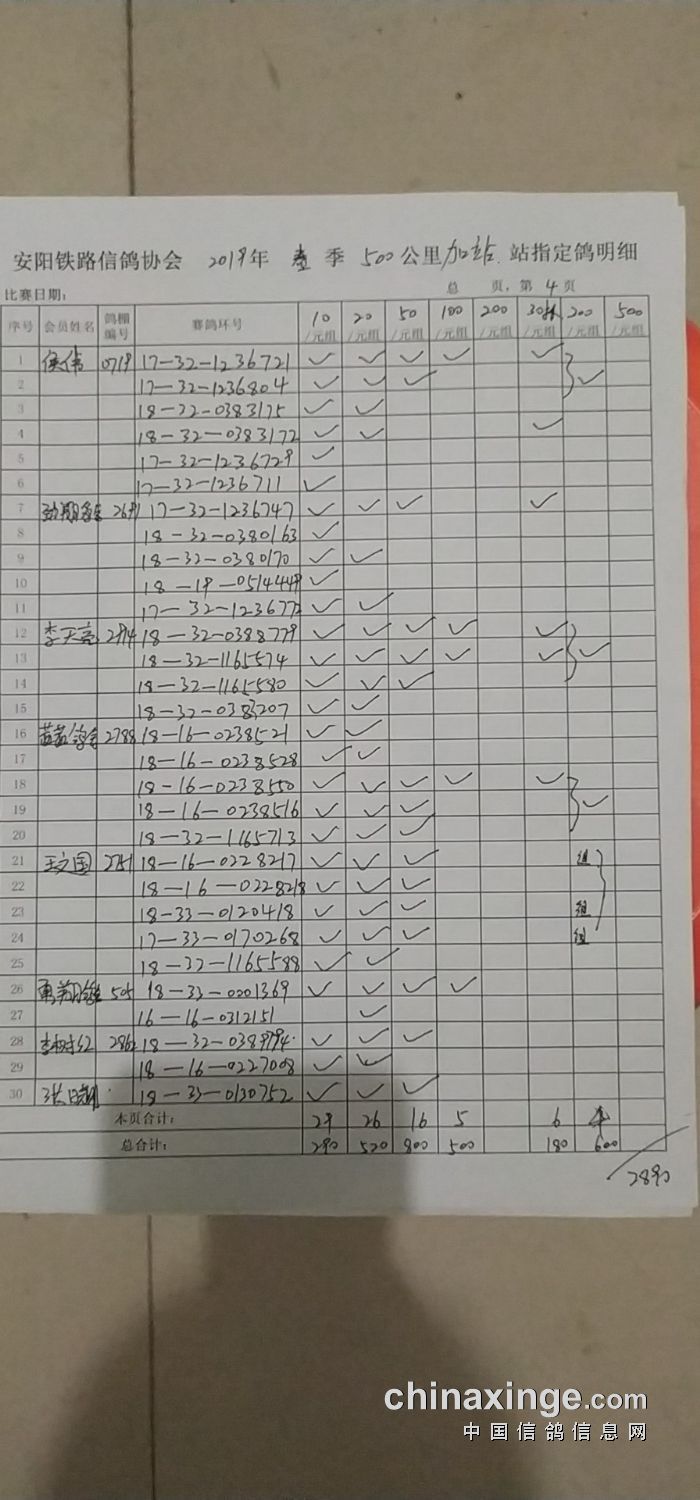 安阳铁路信鸽协会 2019年 春 季 500公里加站 站指定鸽明细
比赛日期: 总 页,第 4 页
序号 会员姓名 鸽棚编号 赛鸽环号 10/元组 20/元组 50/元组 100/元组 200/元组 30/元组 200/元组 500/元组
1 侯伟 0719 17-32-1236721 ✓ ✓ ✓ ✓ ✓
2 17-32-1236804 ✓ ✓ ✓ ✓
3 18-22-0383175 ✓ ✓
4 18-32-0383172 ✓ ✓ ✓
5 17-32-1236729 ✓
6 17-32-1236711 ✓
7 17-32-1236747 ✓ ✓ ✓ ✓
8 18-32-0380163 ✓
9 18-32-0380170 ✓ ✓
10 18-19-0514449 ✓
11 17-32-123677 ✓ ✓
12 李天亮 2914 18-32-0388779 ✓ ✓ ✓ ✓ ✓
13 18-32-1165574 ✓ ✓ ✓ ✓ ✓ ✓
14 18-32-1165580 ✓ ✓ ✓
15 18-32-0383207 ✓ ✓
16 2788 18-16-0238521 ✓ ✓
17 18-16-0238528 ✓ ✓
18 18-16-0238550 ✓ ✓ ✓ ✓ ✓
19 18-16-0238516 ✓ ✓ ✓ ✓
20 18-32-1165713 ✓ ✓ ✓
21 王文国 2751 18-16-0228217 ✓ ✓ ✓ 组
22 18-16-0228218 ✓ ✓ ✓
23 18-33-0120418 ✓ ✓ ✓ 组
24 17-33-0170268 ✓ ✓ ✓ 组
25 18-32-1165588 ✓ ✓
26 505 18-33-0001369 ✓ ✓ ✓ ✓
27 16-16-0312151 ✓
28 李树红 2862 ✓ ✓ ✓
29 18-16-0227008 ✓ ✓
30 18-33-0130752 ✓ ✓ ✓
本页合计: 29 26 16 5 6 4
总合计: 290 520 800 500 180 600
2890
chinaxinge.com
中国信鸽信息网